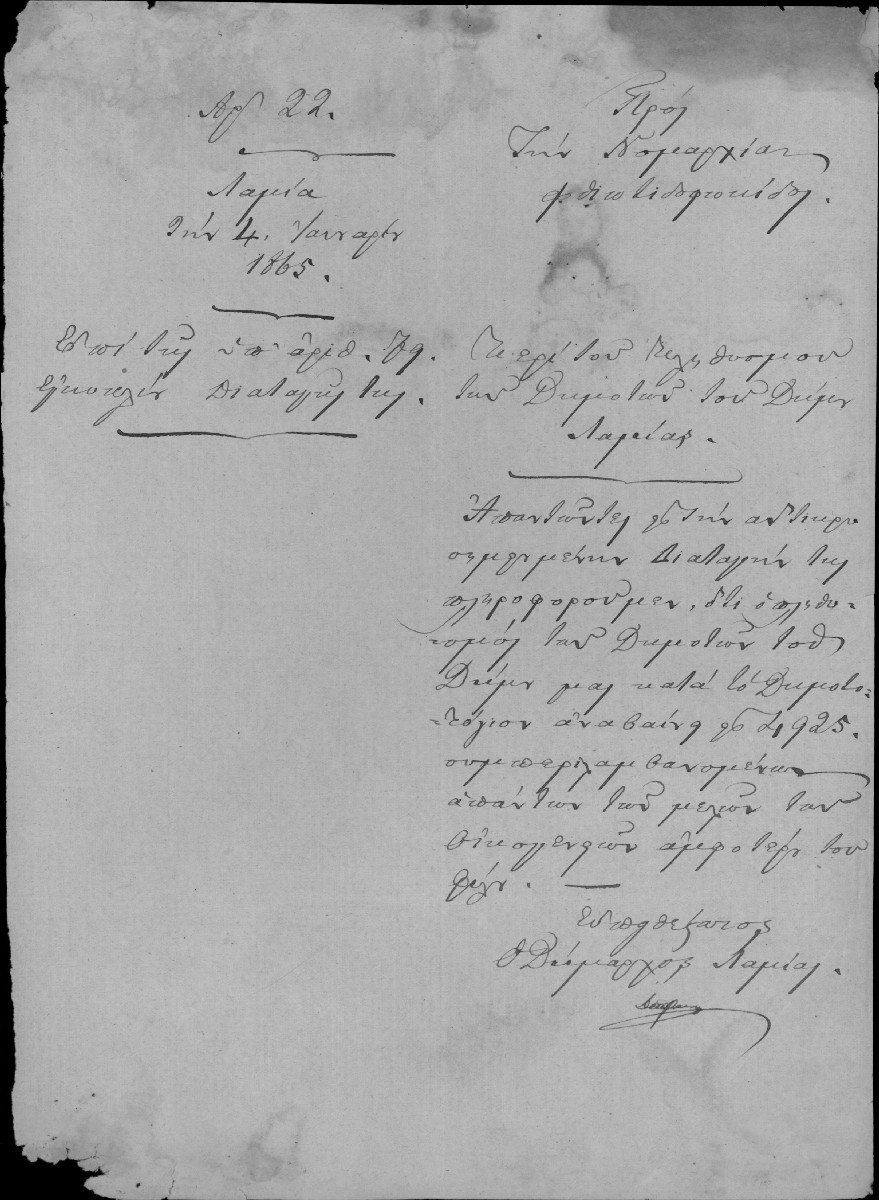 Αρθ 22.
Λαμία
την 4. Ιανναρίου
1865.
Επί της υπ' αριθ. 79.
εγκυκλίου διαταγής της.
Προς
Την Νομαρχίαν
Φθιωτιδοφωκίδος.
Περί του πληθυσμού
των Δημοτών του Δήμου
Λαμίας.
Απαντώντες εις την αντικρυ
σημειωμένην διαταγήν της
πληροφορούμεν, ότι ο πληθυ-
-σμός των Δημοτών του
Δήμου μας κατά το Δημοτο-
-λόγιον αναβαίνει εις 4925.
συμπεριλαμβανομένων
απάντων των μελών των
οικογενειών αμφοτέρου του
φύλου. —
Ευπειθέστατος
Ο Δήμαρχος Λαμίας.